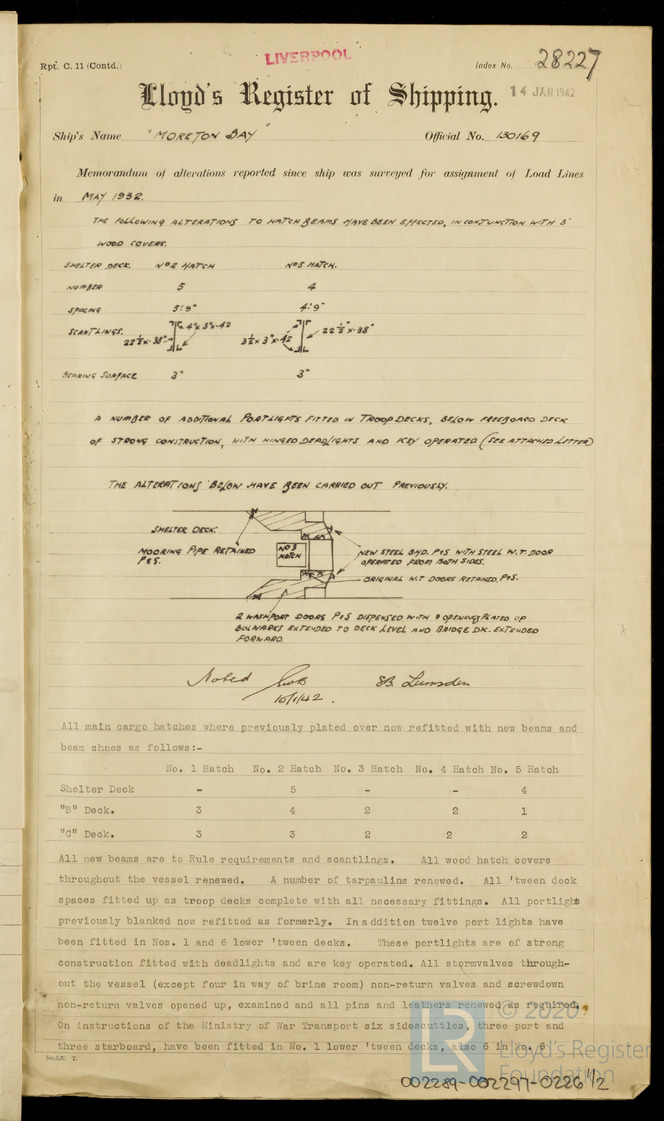 LIVERPOOL
Rpt. C. 11 (Contd.)
Index No. 28227
Lloyd's Register of Shipping.
14 JAN 1942
Ship's Name "MORETON BAY" Official No. 130169
Memorandum of alterations reported since ship was surveyed for assignment of Load Lines
in MAY 1932.
THE FOLLOWING ALTERATIONS TO HATCH BEAMS HAVE BEEN EFFECTED, IN CONJUNCTION WITH 3"
WOOD COVERS.
SHELTER DECK. No 2 HATCH No 5 HATCH.
NUMBER 5 4
SPACING 5'.9" 4'.9"
SCANTLINGS. 22½"x.38" 4"x 3"x.42 3½"x 3"x.42 22½"x.38"
BEARING SURFACE 3" 3"
A NUMBER OF ADDITIONAL PORTLIGHTS FITTED IN TROOP DECKS, BELOW FREEBOARD DECK
OF STRONG CONSTRUCTION, WITH HINGED DEADLIGHTS AND KEY OPERATED (SEE ATTACHED LETTER)
THE ALTERATIONS BELOW HAVE BEEN CARRIED OUT PREVIOUSLY.
SHELTER DECK.
MOORING PIPE RETAINED
P&S.
No 3
HATCH
NEW STEEL BHD. P&S WITH STEEL W.T. DOOR
OPERATED FROM BOTH SIDES.
ORIGINAL W.T DOORS RETAINED, P&S.
2 WASHPORT DOORS P&S DISPENSED WITH & OPENINGS PLATED UP
BULWARKS EXTENDED TO DECK LEVEL AND BRIDGE DK. EXTENDED
FORWARD.
Noted
15/1/42.
Lumsden
All main cargo hatches where previously plated over now refitted with new beams and
beam shoes as follows:-
No. 1 Hatch No. 2 Hatch No. 3 Hatch No. 4 Hatch No. 5 Hatch
Shelter Deck - 5 - - 4
"B" Deck. 3 4 2 2 1
"C" Deck. 3 3 2 2 2
All new beams are to Rule requirements and scantlings. All wood hatch covers
throughout the vessel renewed. A number of tarpaulins renewed. All 'tween deck
spaces fitted up as troop decks complete with all necessary fittings. All portlight
previously blanked now refitted as formerly. In addition twelve port lights have
been fitted in Nos. 1 and 6 lower 'tween decks. These portlights are of strong
construction fitted with deadlights and are key operated. All stormvalves through-
out the vessel (except four in way of brine room) non-return valves and screwdown
non-return valves opened up, examined and all pins and leathers renewed as required.
On instructions of the Ministry of War Transport six sidescuttles, three port and
three starboard, have been fitted in No. 1 lower 'tween decks, also 6 in No. 6
© 2020
LR
Lloyd's Register
Foundation
002289-002297-0226 1/2